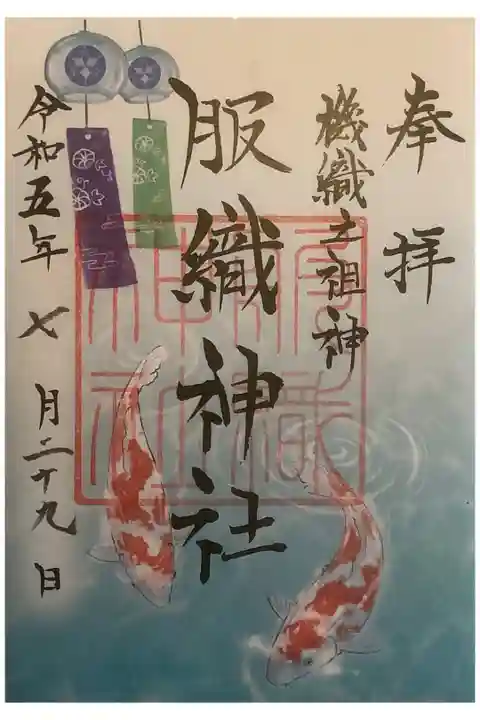 奉拝
機織之祖神
服織神社
令和五年 七月二十九日